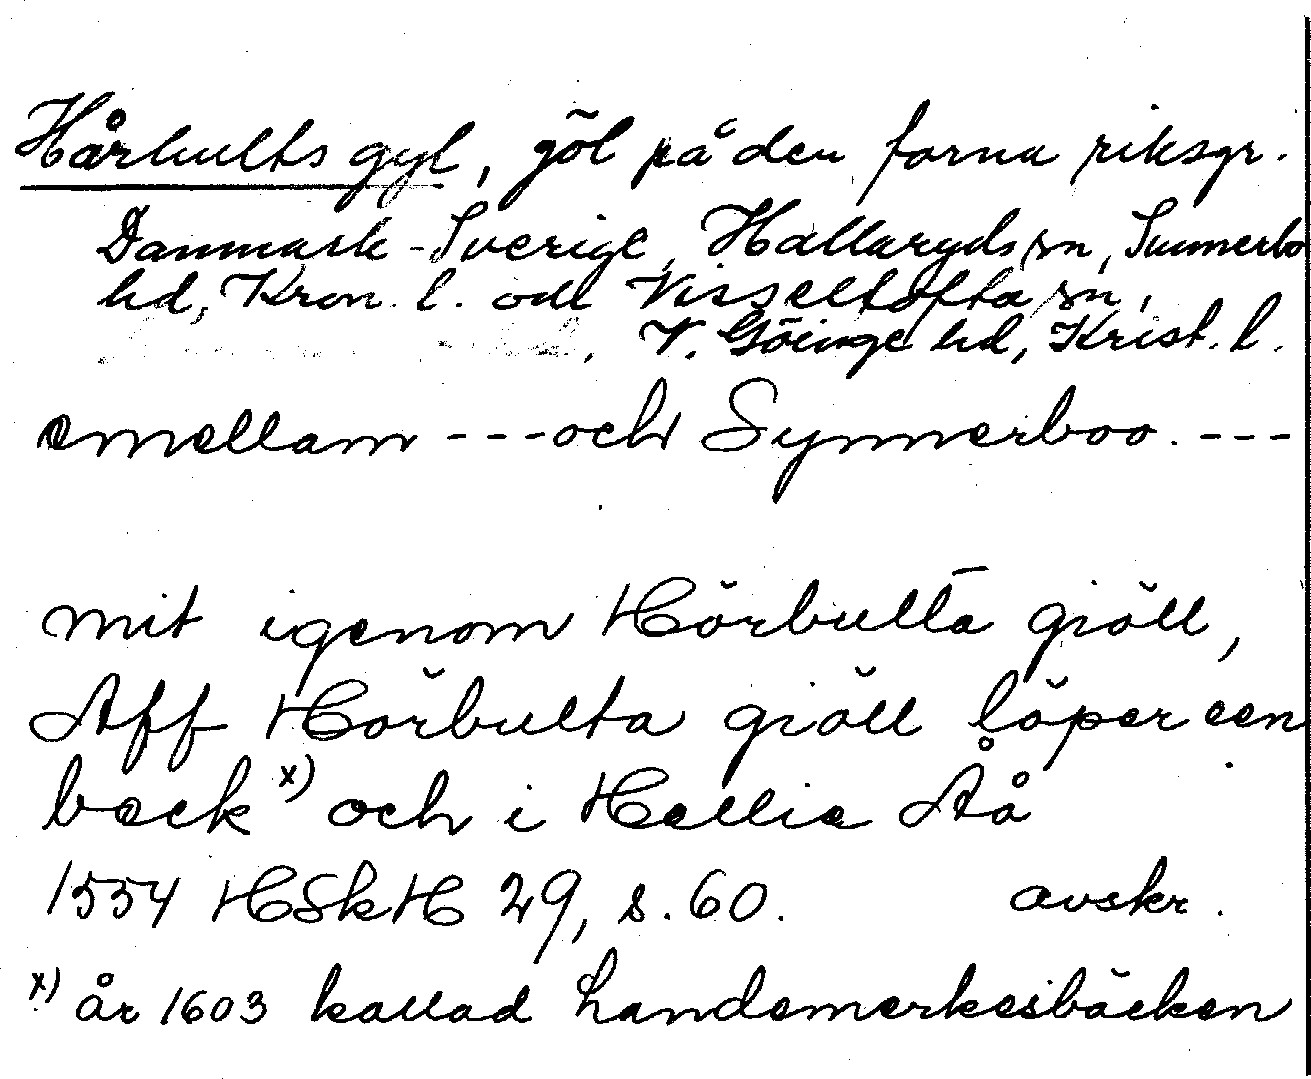 Hårhults gyl, göl på den forna riksgr.
Danmark-Sverige, Hallaryds sn, Sunnerbo
hd, Kron. l. och Visseltofta sn,
V. Göinge hd, Krist. l.
emellam --- och Synnerboo. ---
mit igenom Hörbulta giöll,
Aff Hörbulta giöll löper een
beck x) och i Hellie Åå
1554 HSkH 29, s. 60. avskr.
x) år 1603 kallad Landemerkesbäcken